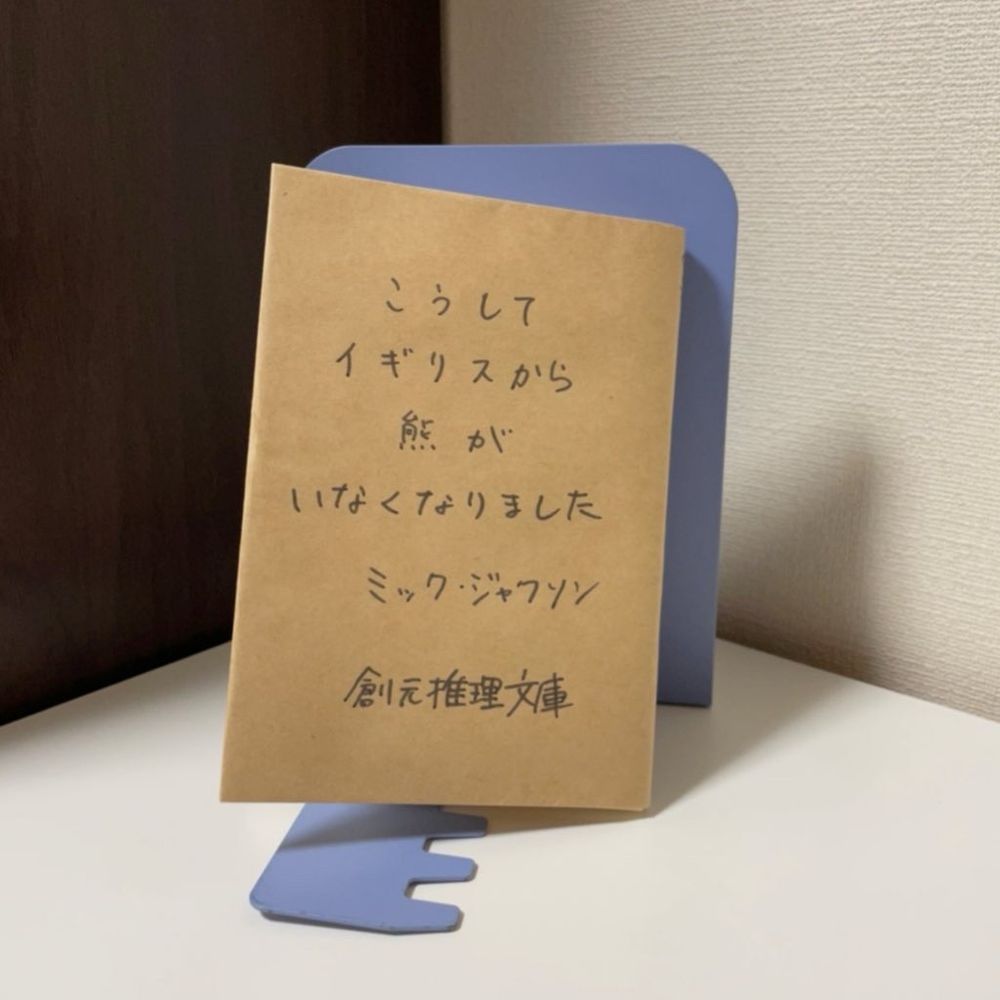 こうして
イギリスから
熊が
いなくなりました
ミック・ジャクソン
創元推理文庫